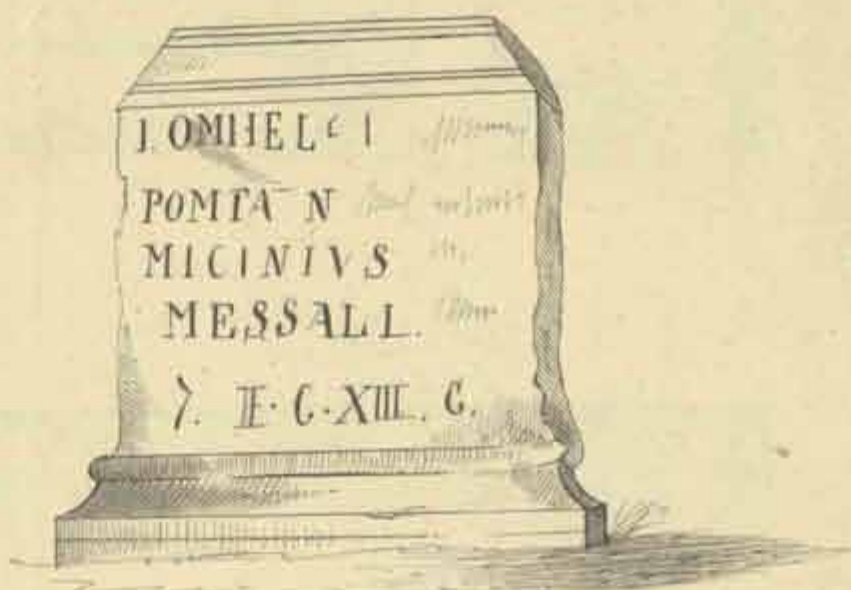 I. OMHELCI
POMTA¯N
MICINIVS
MESSALL.
7. II·C·XIII. G.